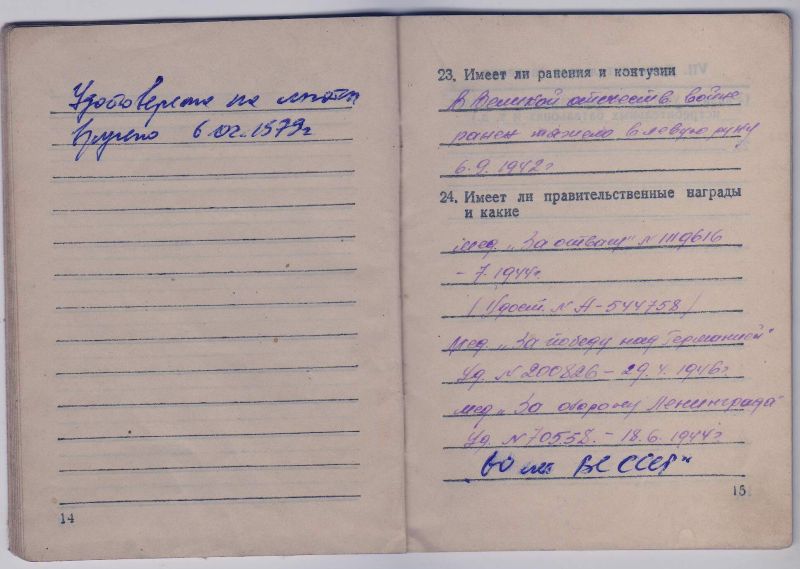 Удостоверение на льготы
вручено 6.02.1979г
14
23. Имеет ли ранения и контузии
В Великой отечеств. войне
ранен тяжело в левую руку
6.9.1942г
24. Имеет ли правительственные награды
и какие
Мед. „За отвагу" N 1119616
– 7.1944г.
(Удост. N А-544758)
Мед. „За победу над Германией"
Уд. N 200826 – 29.4.1946г
мед „За оборону Ленинграда"
Уд. N 70558. – 18.6.1944г
„60 лет ВС СССР"
15